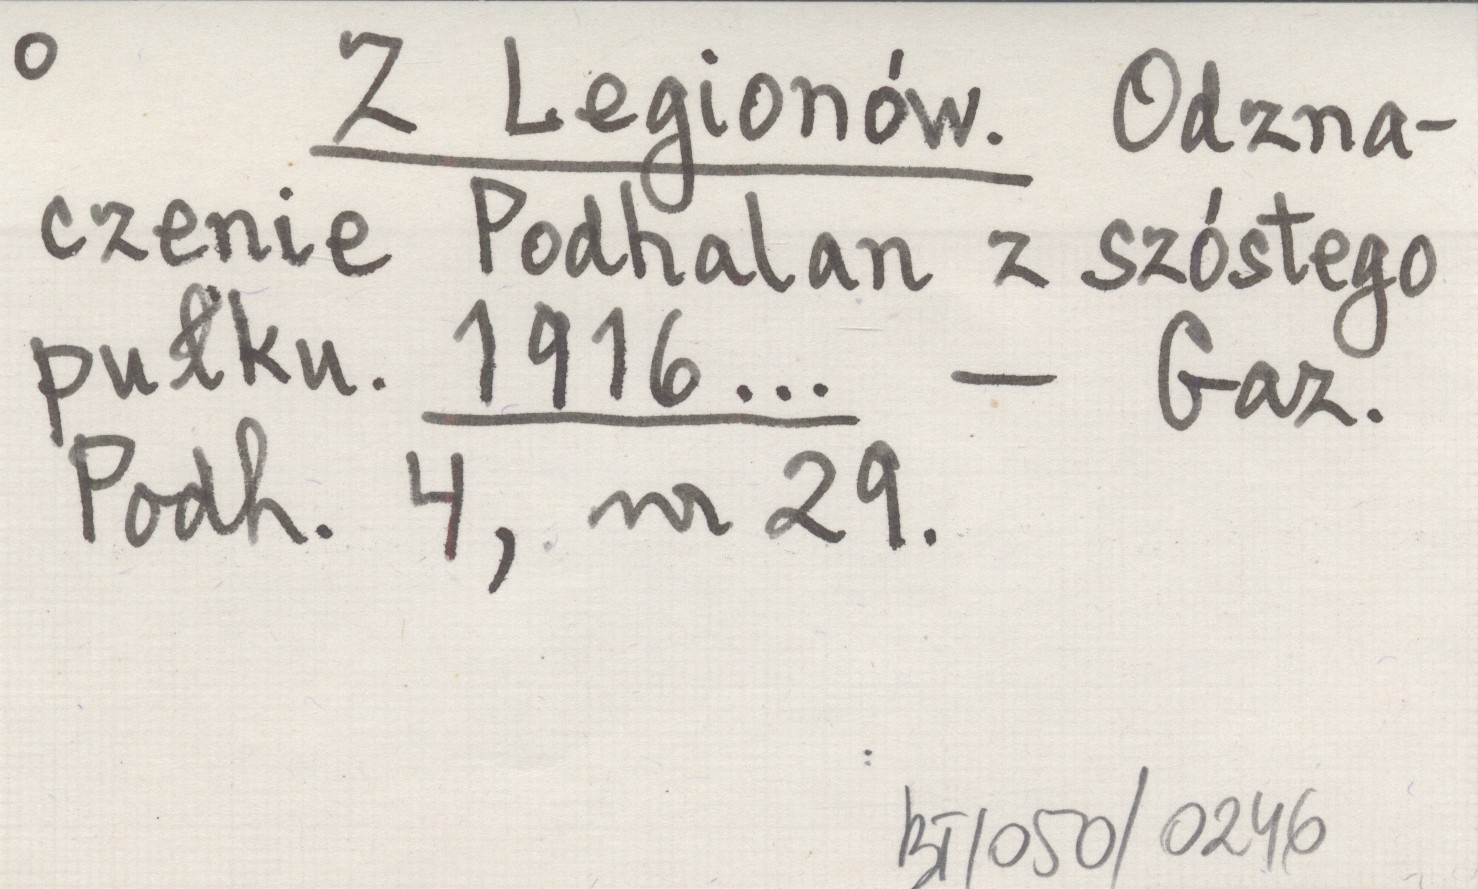 o Z Legionów. Odzna-
czenie Podhalan z szóstego
pułku. 1916... — Gaz.
Podh. 4, nr 29.
BT/050/0246